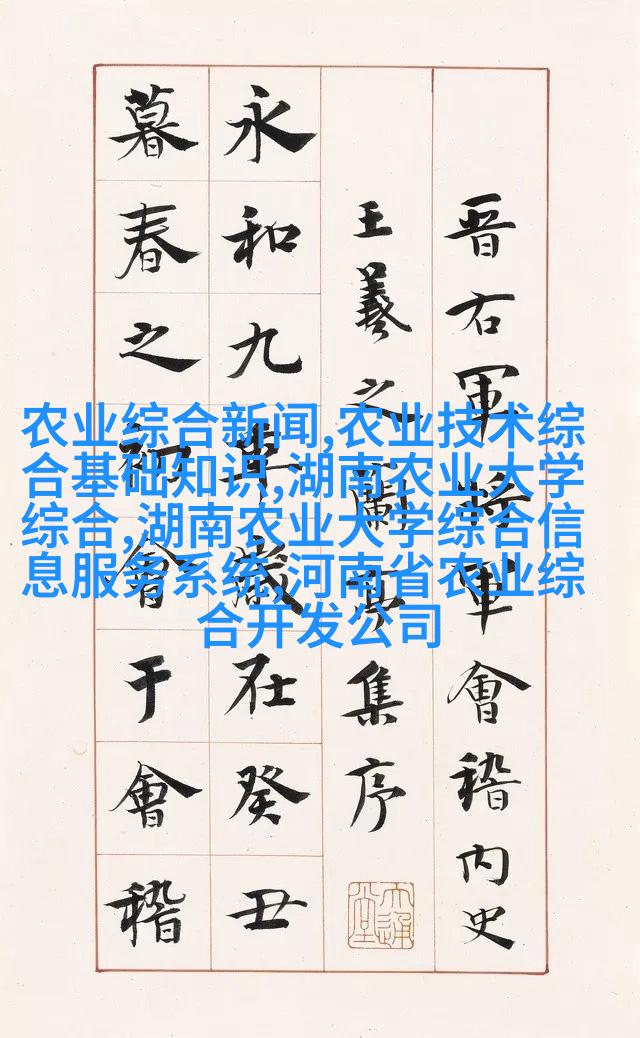 晋右軍將軍會稽内史
王羲之蘭亭集序
永和九年歲在癸丑
暮春之初會于會稽
农业综合新闻,农业技术综
合基础知识,湖南农业大学
综合,湖南农业大学综合信
息服务系统,河南省农业综
合开发公司